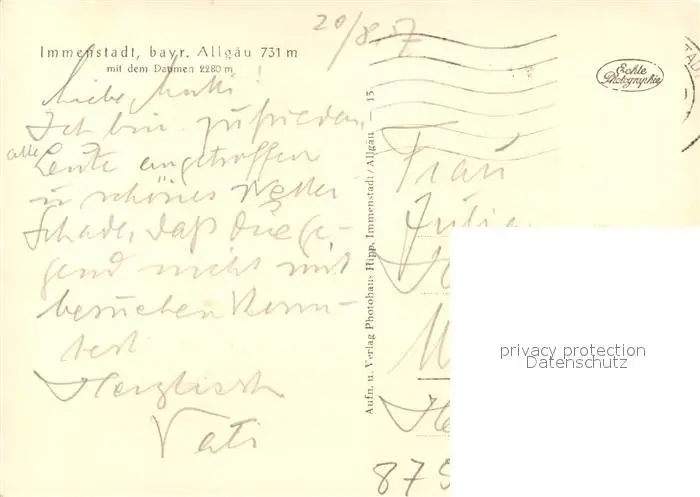 Immenstadt, bayr. Allgäu 731 m
mit dem Daumen 2280 m
20/8 57
Liebe Mutti!
Ich bin zufrieden,
alte Leute angetroffen
u schönes Wetter
Schade, daß du die Ge-
gend nicht mit
besuchen konn-
test
Herzlichst
Vati
Aufn. u. Verlag Photohaus Hipp, Immenstadt/Allgäu — 15
Echte
Photographie
Frau
privacy protection
Datenschutz